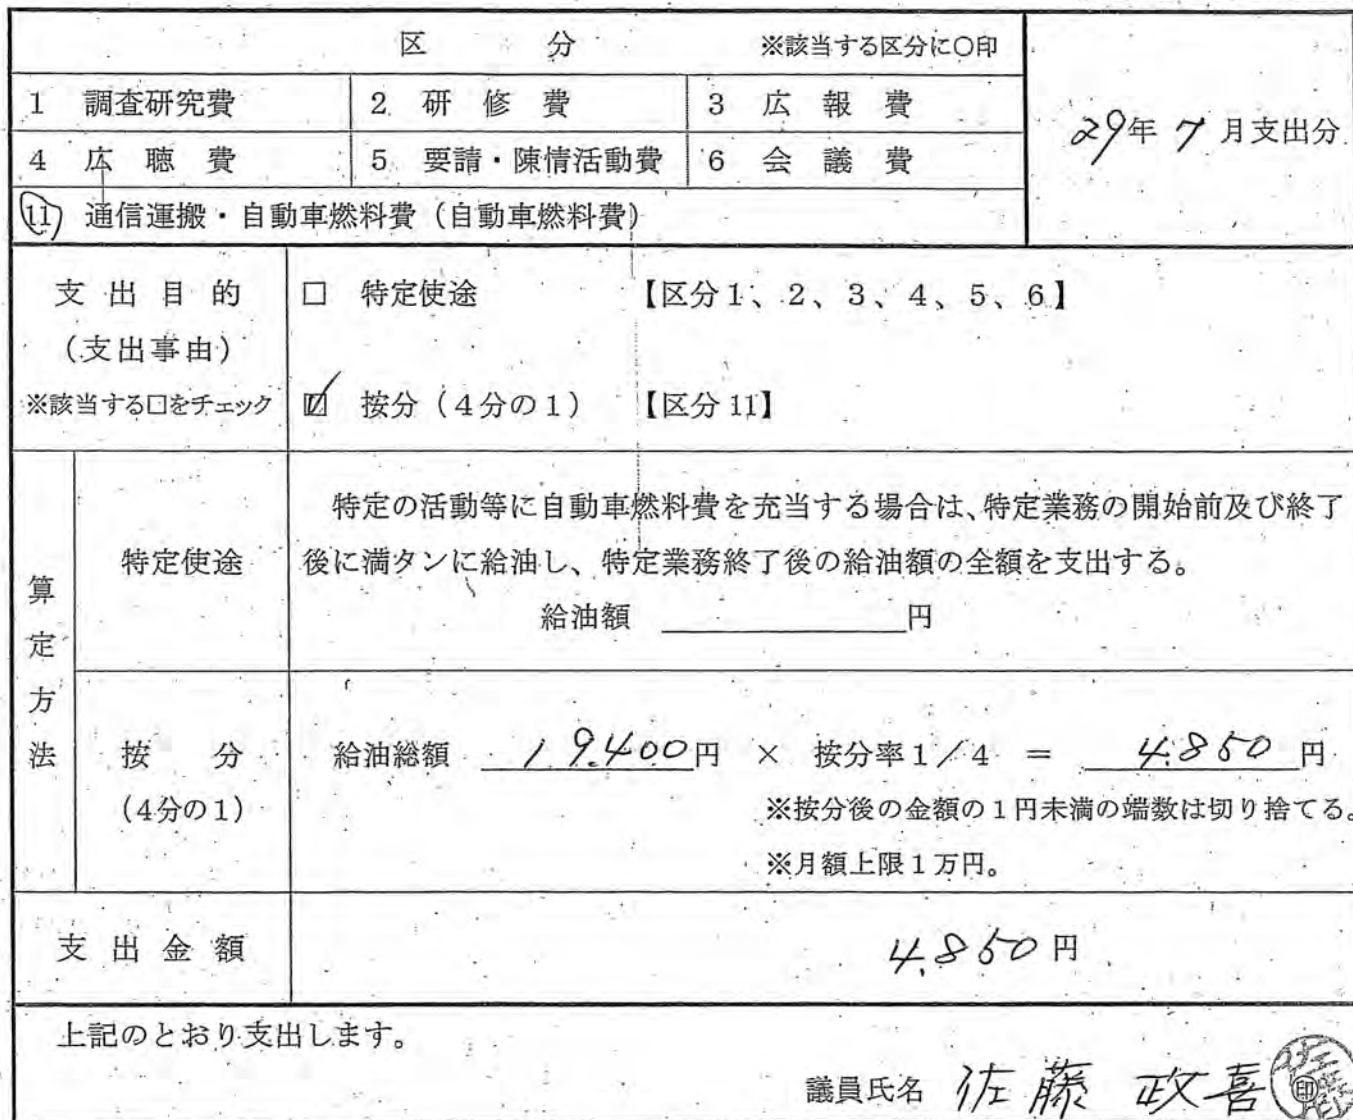 区 分 ※該当する区分に○印
1 調査研究費 2 研 修 費 3 広 報 費
29年 7 月支出分
4 広 聴 費 5 要請・陳情活動費 6 会 議 費
11 通信運搬・自動車燃料費(自動車燃料費)
支 出 目 的
(支出事由)
※該当する□をチェック
□ 特定使途 【区分1、2、3、4、5、6】
☑ 按分(4分の1) 【区分11】
算定方法
特定使途
特定の活動等に自動車燃料費を充当する場合は、特定業務の開始前及び終了
後に満タンに給油し、特定業務終了後の給油額の全額を支出する。
給油額 円
按 分
(4分の1)
給油総額 19.400円 × 按分率1/4 = 4.850円
※按分後の金額の1円未満の端数は切り捨てる。
※月額上限1万円。
支 出 金 額 4.850円
上記のとおり支出します。
議員氏名 佐藤 政喜 印
佐藤